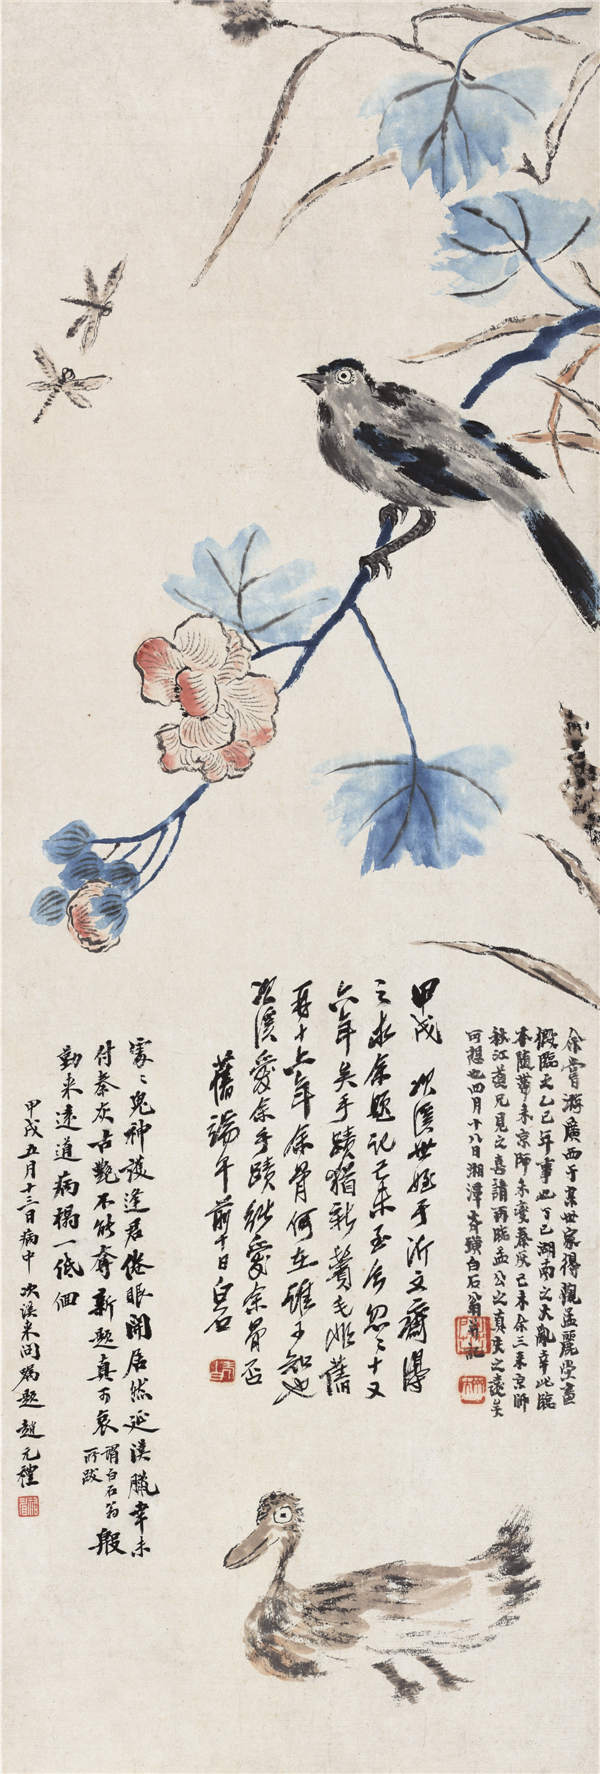 余嘗游廣西于某世家得觀孟麗堂畫
假臨之乙巳年事也丁巳湖南之大亂幸此臨
本随帶来京師未變秦灰己未余三来京師
秋江黄兄見之喜請再臨孟公之真失之遠矣
可想也四月十八日湘潭齊璜白石翁并記
甲戌 次溪世姪于沂文齋得
之求余題記己未至今忽〻十又
六年矣手蹟猶新鬢毛非舊
再十六年余骨何在誰可知也
次溪愛余手蹟能愛余骨否
舊端午前十日白石
處〻鬼神護逢君倦眼開居然延漢臘幸未
付秦灰古艷不能奪新題真可哀謂白石翁所跋 殷
勤来遠道病榻一低佪
甲戌五月十三日病中 次溪来問嘱題 趙元禮